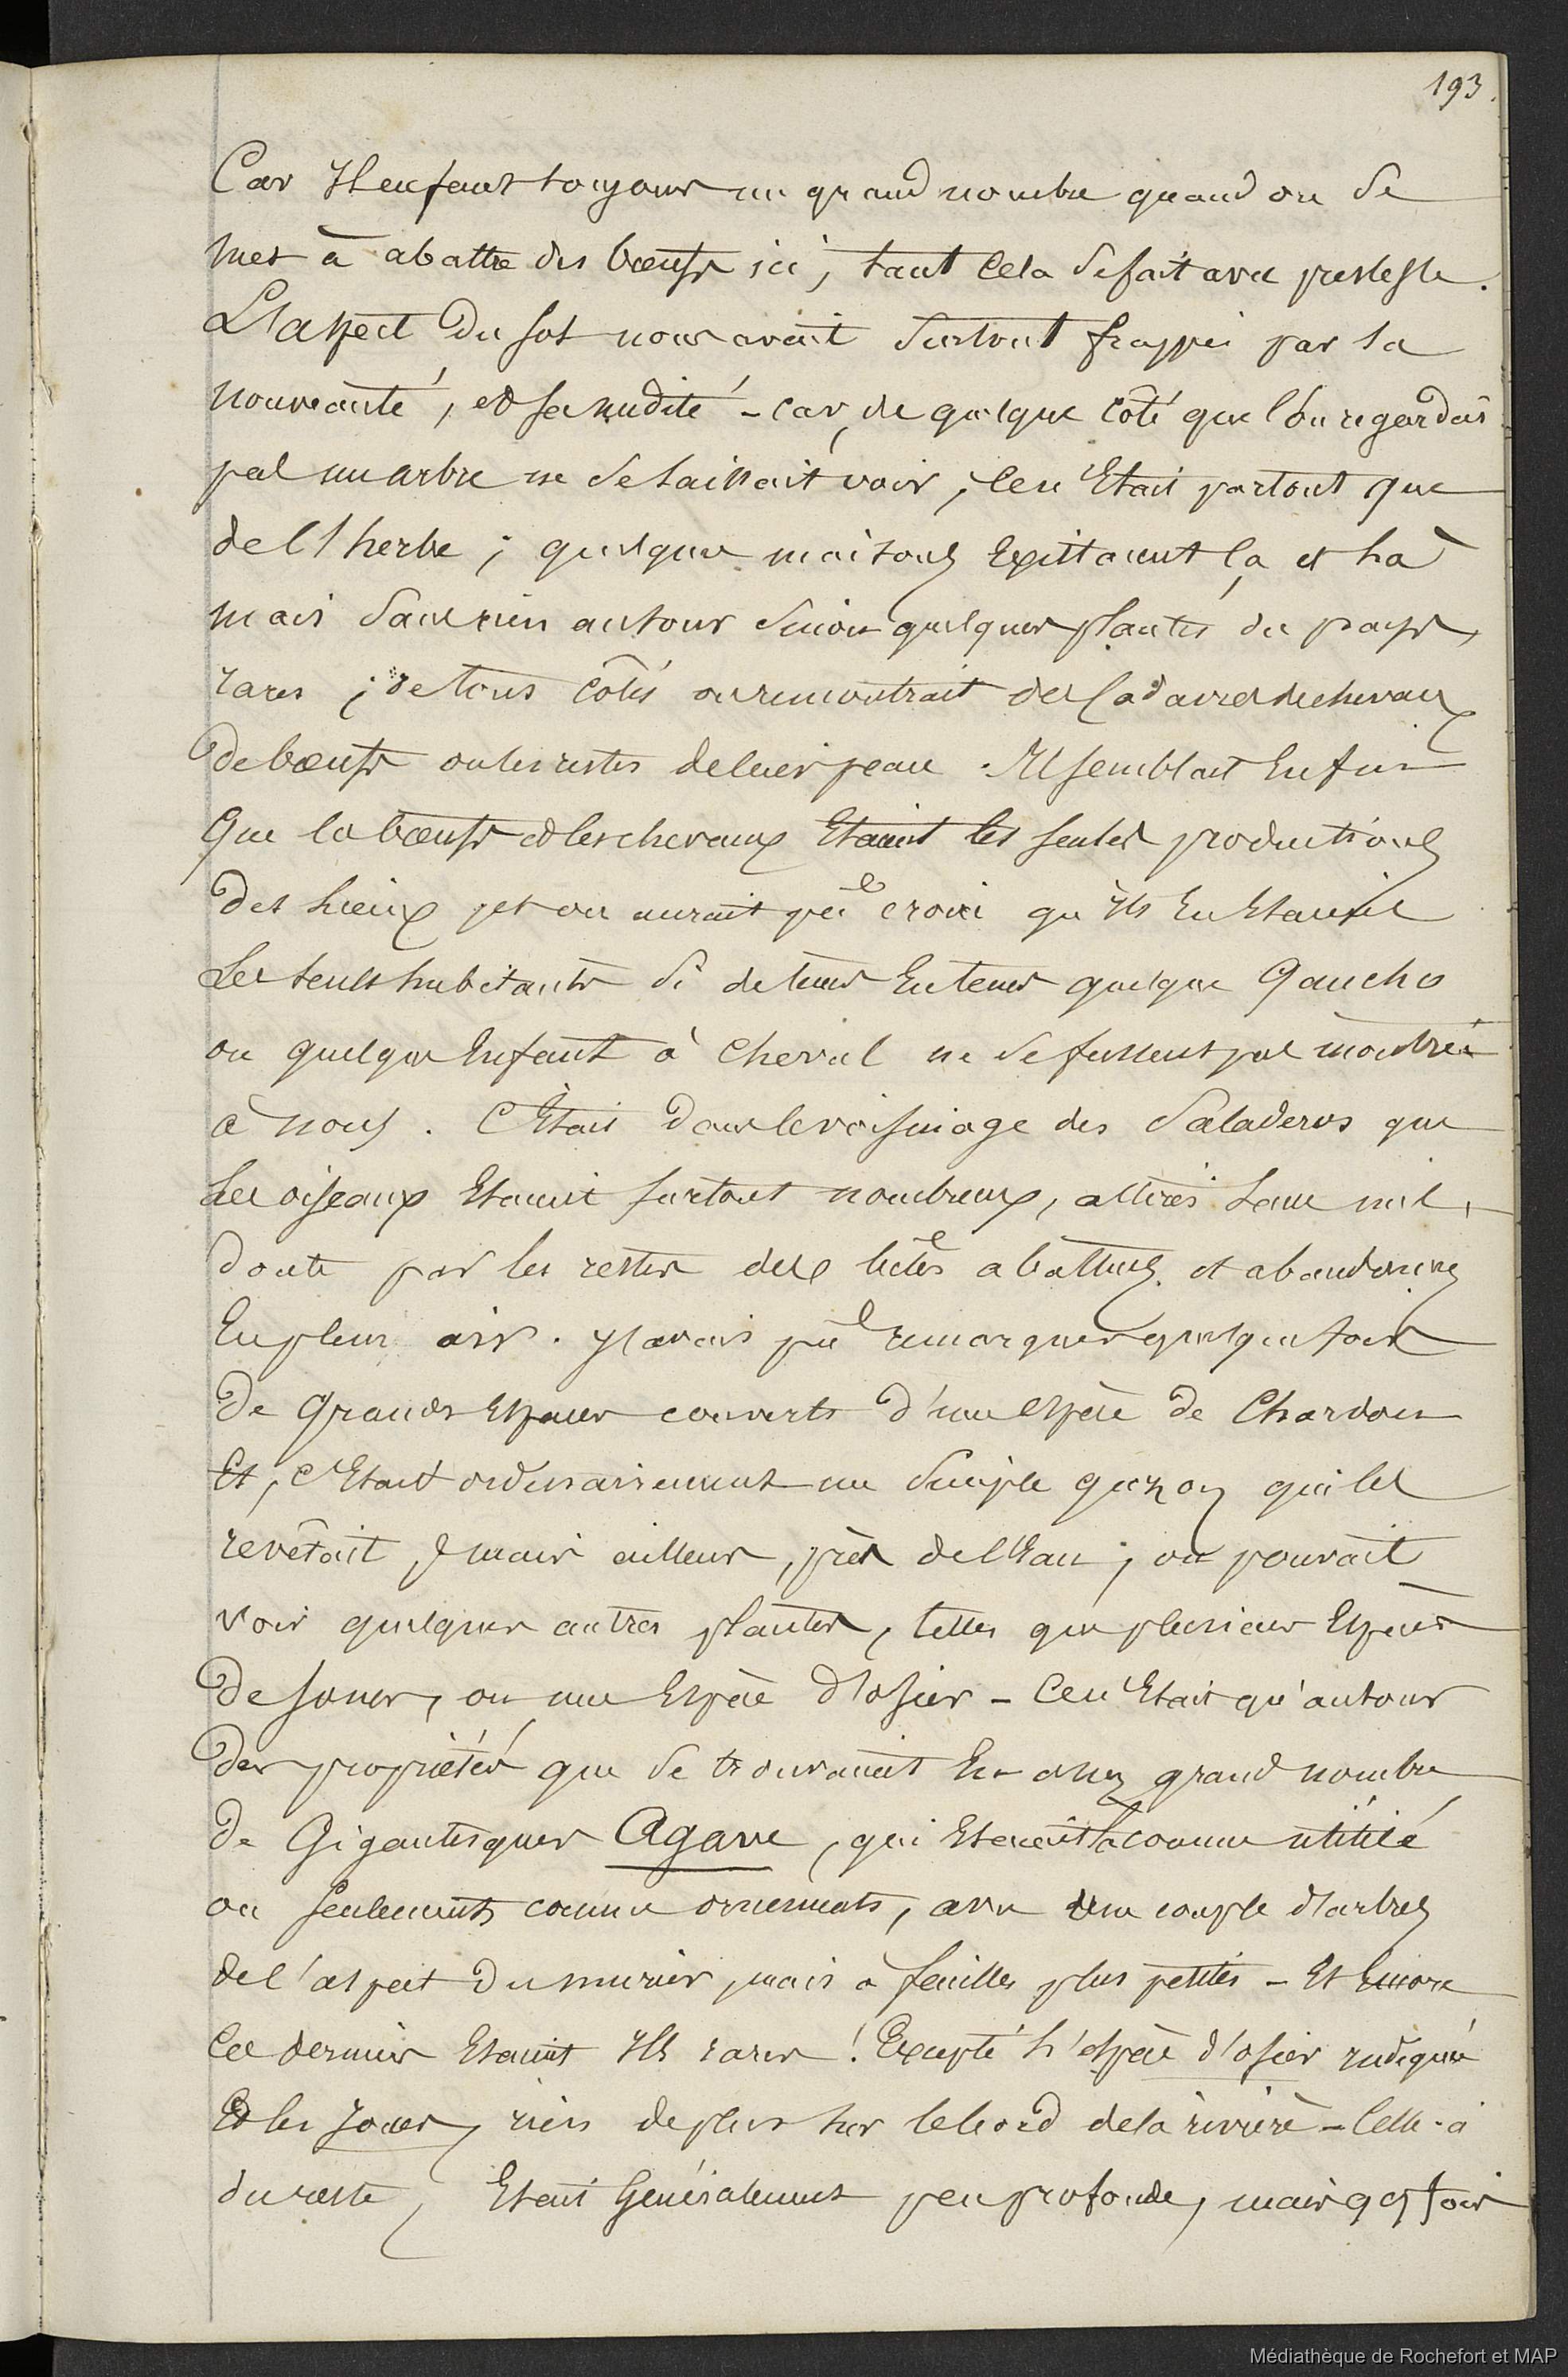 193.
Car Il en faut toujours un grand nombre quand on se
met à abattre des bœufs ici, tant cela se fait avec prestesse.
L'aspect du sol nous avait surtout frappés par sa
nouveauté, et sa nudité - car, de quelque côté que l'on regardât
pas un arbre ne se laissait voir, ce n'Etait partout que
de l'herbe ; quelques maisons Existaient çà et là
mais sans rien autour sinon quelques plantes du pays,
rares ; de tous côtés on rencontrait des Cadavres de chevaux
de bœufs ou les restes de leur peau. Il semblait Enfin
que les bœufs et les chevaux Etaient les seules productions
des lieux, et on aurait pu croire qu'ils En Etaient
Les seuls habitants si de temps En temps quelque Gaucho
ou quelque Enfant à cheval ne se fussent pas montrés
à nous. C'Etait dans le voisinage des Saladeros que
Les oiseaux Etaient surtout nombreux, attirés sans nul
doute par les restes des bêtes abattues et abandonnées
En plein air. J'avais pu remarquer quelquefois
de grands Espaces couverts d'une espèce de Chardon
Et, c'Etait ordinairement un simple gazon qui les
revêtait, mais ailleurs, près de l'Eau, on pouvait
voir quelques autres plantes, telles que plusieurs Espèces
de joncs, ou une Espèce d'osier - Ce n'Etait qu'autour
des propriétés que se trouvaient En assez grand nombre
de Gigantesques Agave, qui Etaient là comme utilité
ou seulement comme ornements, avec une couple d'arbres
de l'aspect du murier, mais à feuilles plus petites - Et Encore
Ces derniers Etaient Ils rares ! Excepté l'espèce d'osier indiquée
Et les Joncs, rien de plus sur le bord de la rivière - Celle-ci
du reste, Etait Généralement peu profonde, mais qq fois
Médiathèque de Rochefort et MAP